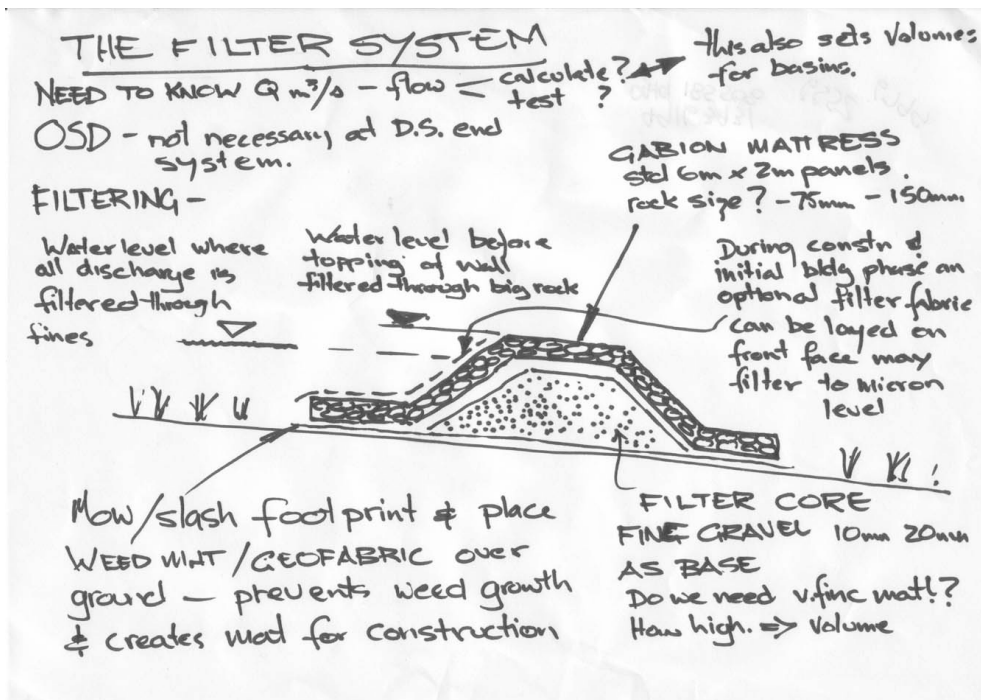 THE FILTER SYSTEM
NEED TO KNOW Q m³/s – flow = calculate?
test ?
this also sets volumes
for basins.
OSD – not necessary at D.S. end
system.
GABION MATTRESS
std 6m x 2m panels.
rock size? – 75mm – 150mm.
FILTERING –
Water level where
all discharge is
filtered through
fines
Water level before
topping of wall
filtered through big rock
During constn &
initial bldg phase an
optional filter fabric
can be layed on
front face may
filter to micron
level
Mow/slash footprint & place
WEED MAT / GEOFABRIC over
ground – prevents weed growth
& creates mat for construction
FILTER CORE
FINE GRAVEL 10mm 20mm
AS BASE
Do we need v.fine matl!?
How high. => Volume